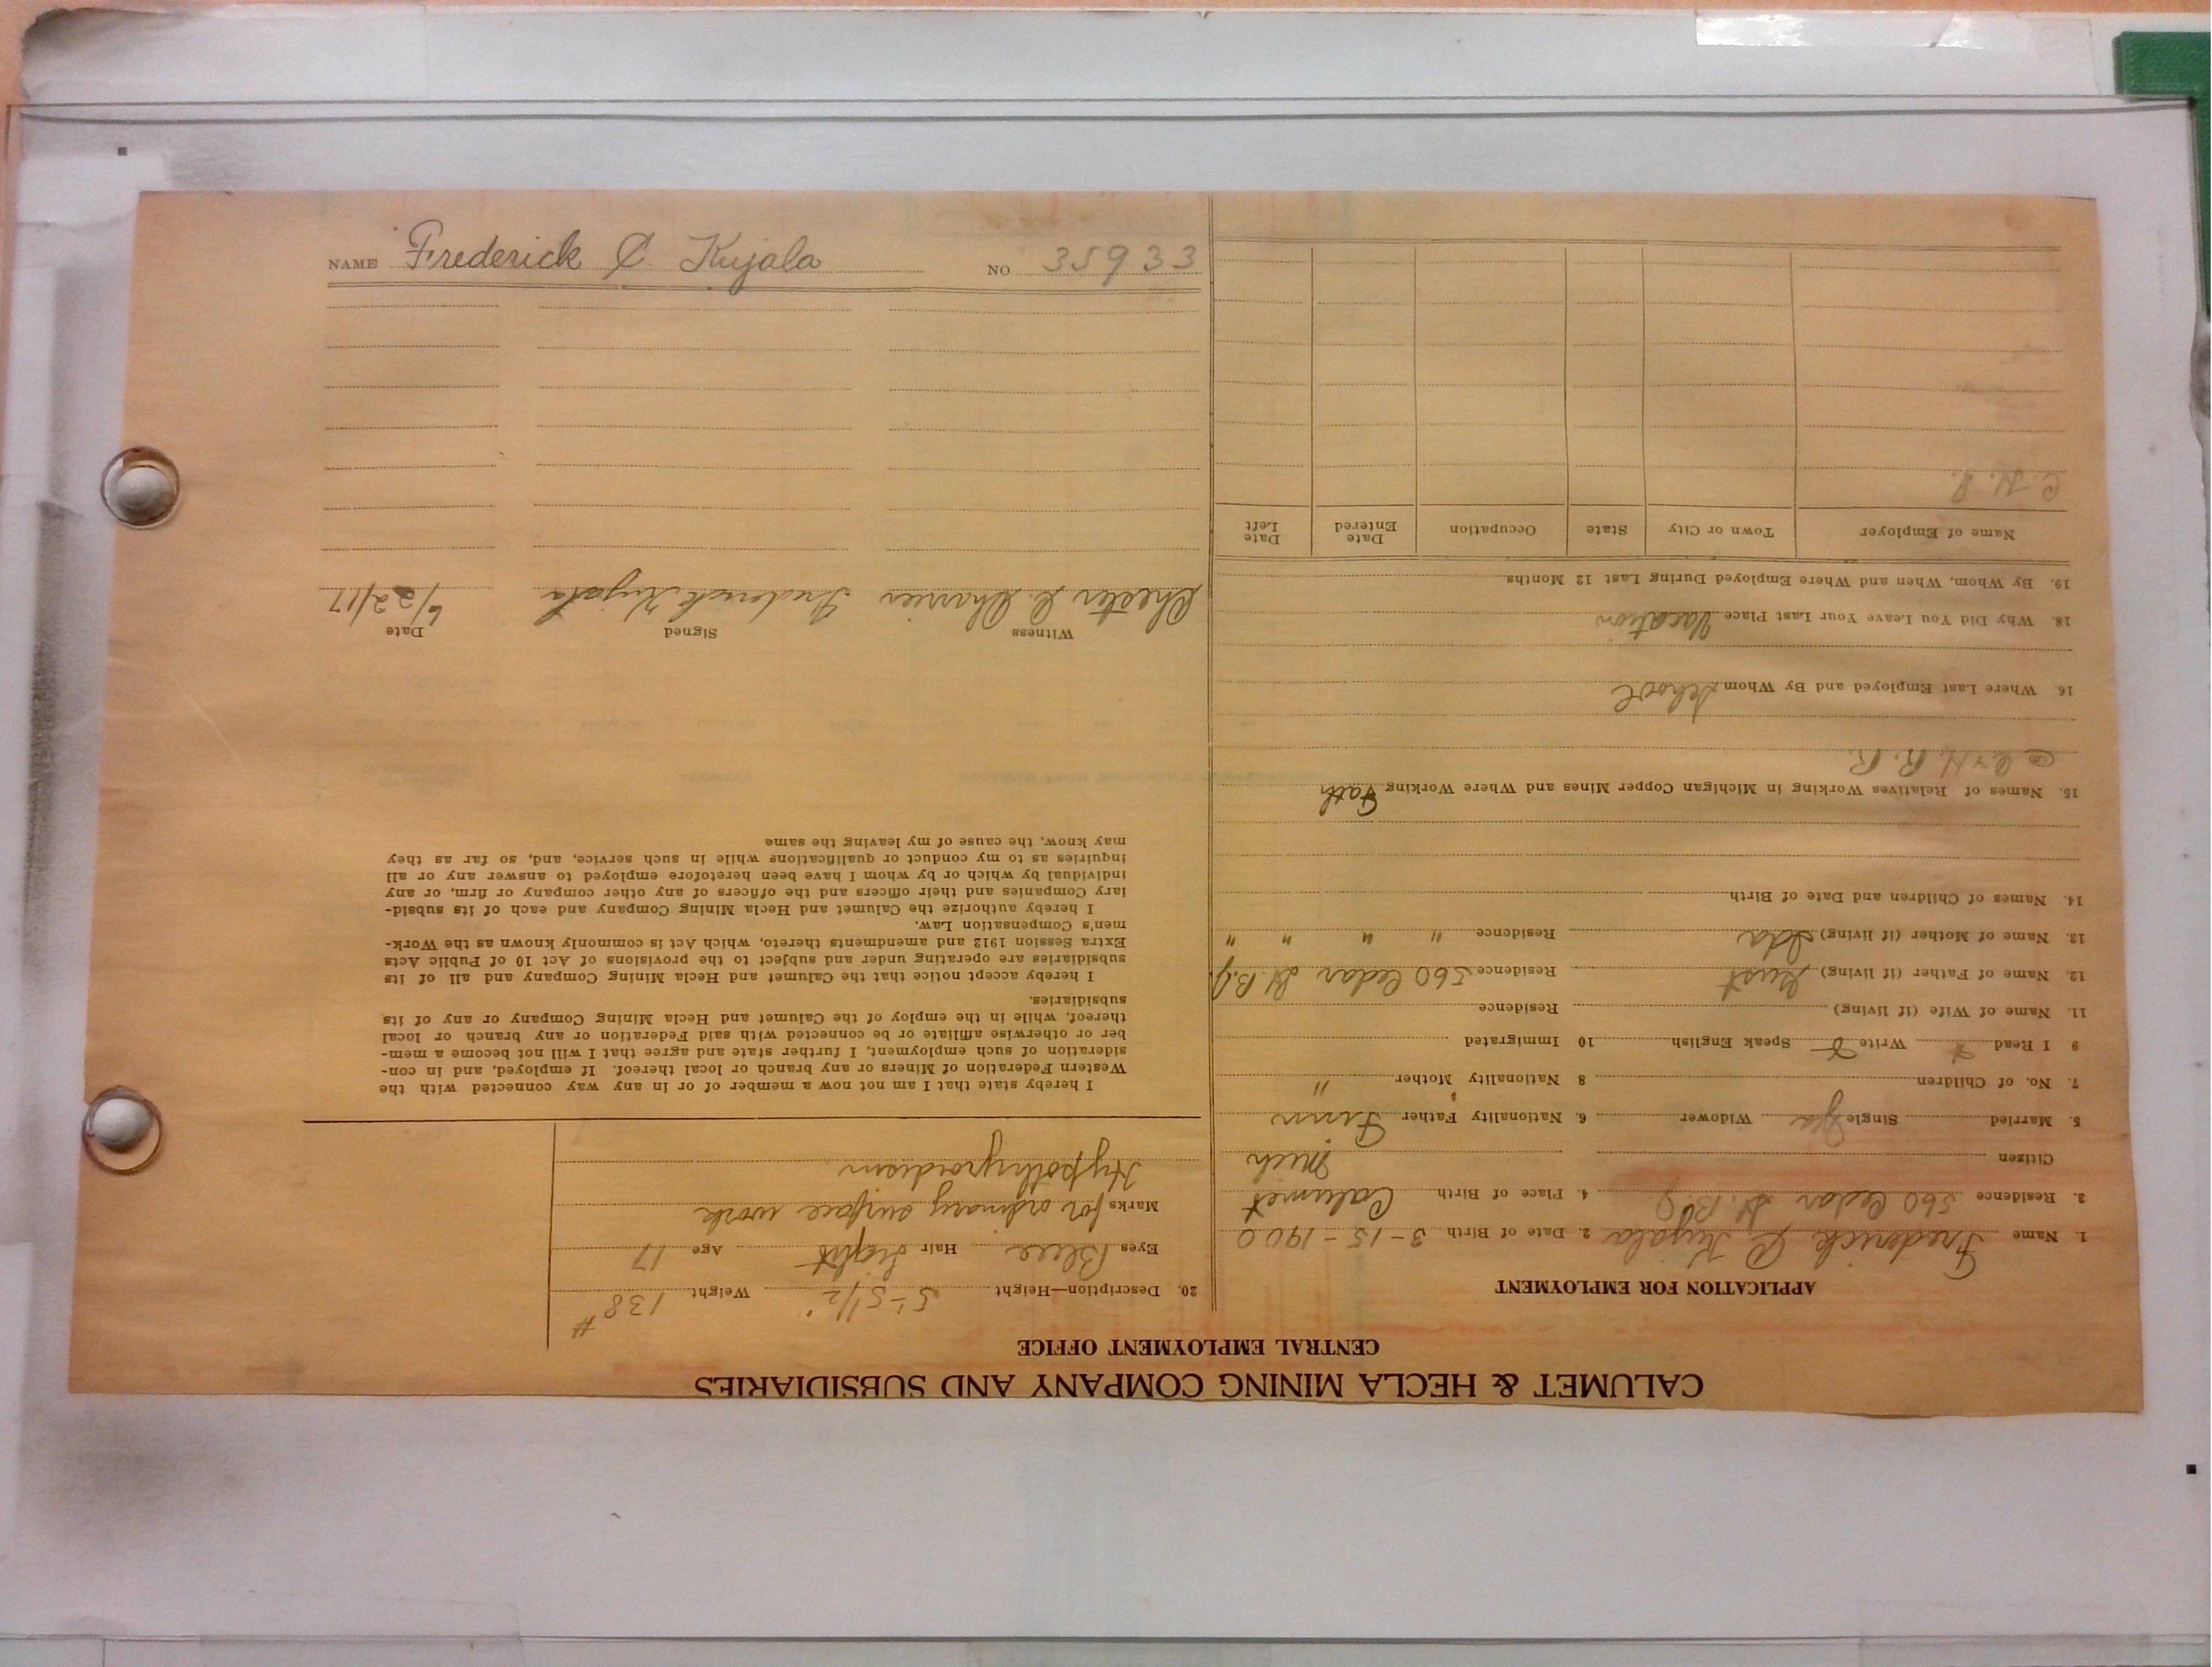 NAME Frederick C. Kujala NO 35933
CALUMET & HECLA MINING COMPANY AND SUBSIDIARIES
CENTRAL EMPLOYMENT OFFICE
APPLICATION FOR EMPLOYMENT
1. Name Frederick C. Kujala 2. Date of Birth 3-15-1900
3. Residence 560 Cedar St. B.J. 4. Place of Birth Calumet
Citizen Mich
5. Married Single Yes Widower 6. Nationality Father Finn
7. No. of Children 8 Nationality Mother "
9 I Read Write Speak English 10 Immigrated
11. Name of Wife (if living) Residence
12. Name of Father (if living) Gust Residence 560 Cedar St B.J.
13. Name of Mother (if living) Ida Residence " " " "
14. Names of Children and Date of Birth
15. Names of Relatives Working in Michigan Copper Mines and Where Working Fath
@ C+H. R. R.
16. Where Last Employed and By Whom School
18. Why Did You Leave Your Last Place Vacation
19. By Whom, When and Where Employed During Last 12 Months
Name of Employer Town or City State Occupation Date Entered Date Left
C. H. S.
20. Description—Height 5'-5 1/2" Weight 138#
Eyes Blue Hair Light Age 17
Marks for ordinary surface work
Hypothyroidism
I hereby state that I am not now a member of or in any way connected with the
Western Federation of Miners or any branch or local thereof. If employed, and in con-
sideration of such employment, I further state and agree that I will not become a mem-
ber or otherwise affiliate or be connected with said Federation or any branch or local
thereof, while in the employ of the Calumet and Hecla Mining Company or any of its
subsidiaries.
I hereby accept notice that the Calumet and Hecla Mining Company and all of its
subsidiaries are operating under and subject to the provisions of Act 10 of Public Acts
Extra Session 1912 and amendments thereto, which Act is commonly known as the Work-
men's Compensation Law.
I hereby authorize the Calumet and Hecla Mining Company and each of its subsid-
iary Companies and their officers and the officers of any other company or firm, or any
individual by which or by whom I have been heretofore employed to answer any or all
inquiries as to my conduct or qualifications while in such service, and, so far as they
may know, the cause of my leaving the same
Witness Signed Date
Chester C. Frederick Kujala 6/22/17